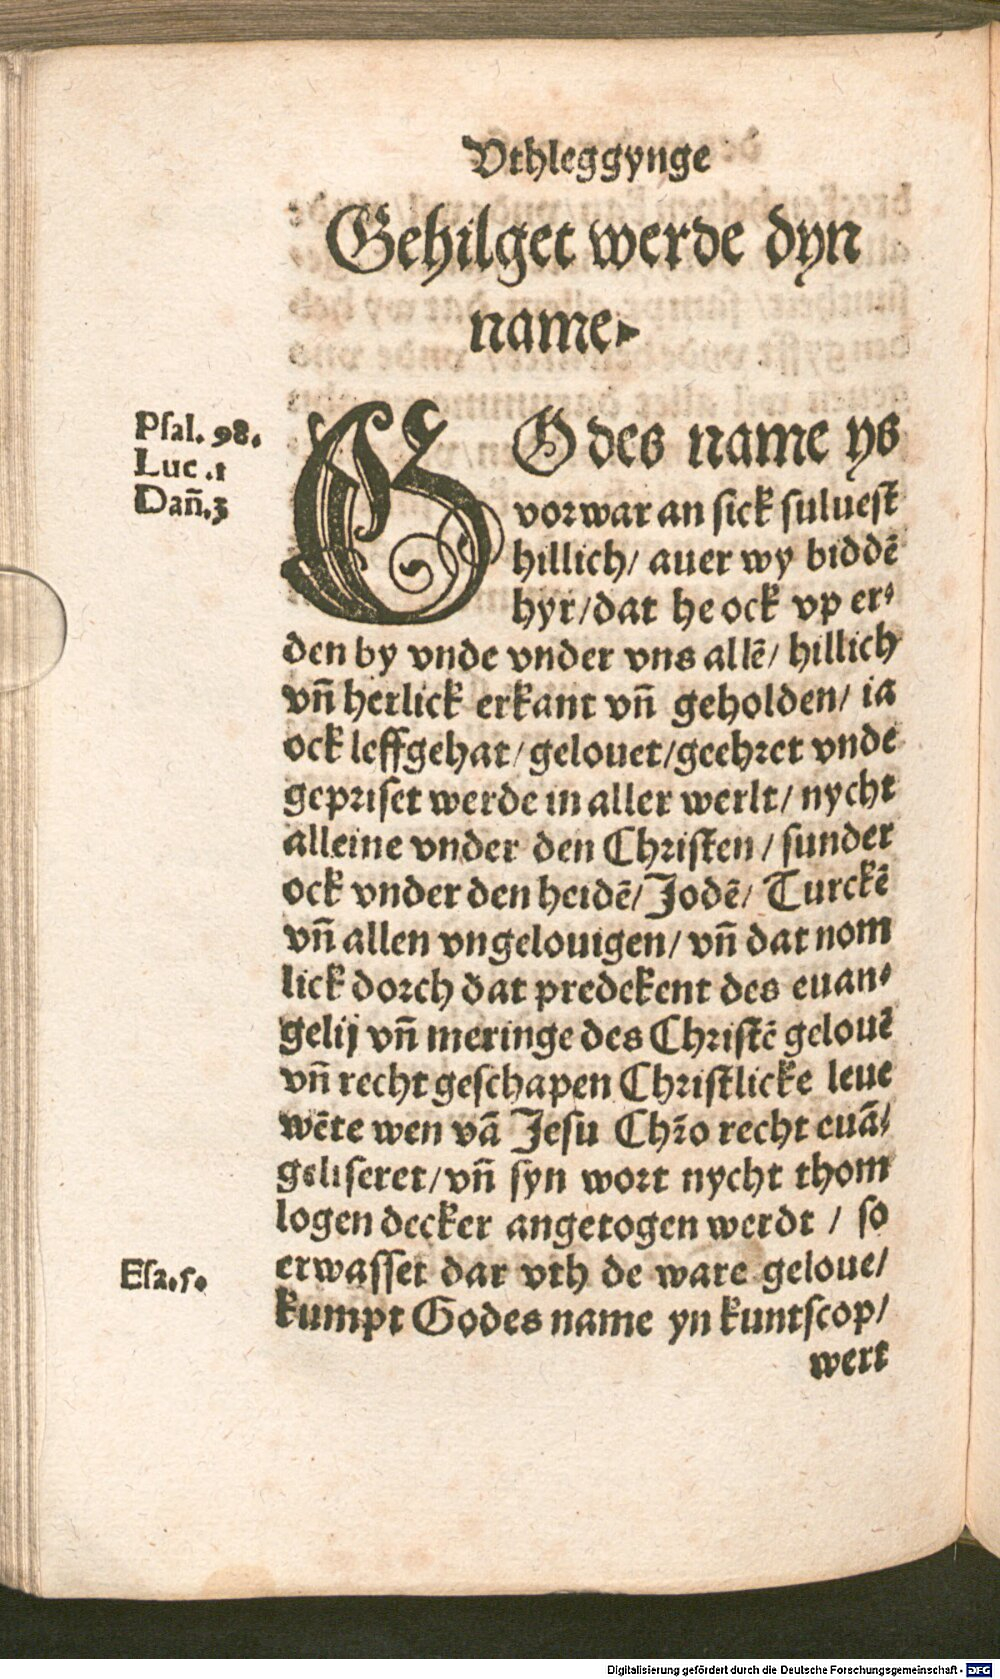 Vthleggynge
Gehilget werde dyn
name.
Psal. 98.
Luc .1
Dañ.3
GOdes name ys
vorwar an sick suluest
hillich/ auer wy biddẽ
hyr/dat he ock vp er-
den by vnde vnder vns allẽ/ hillich
vñ herlick erkant vñ geholden/ ia
ock leffgehat/ gelouet/geehret vnde
gepriset werde in aller werlt/ nycht
alleine vnder den Christen / sunder
ock vnder den heidẽ/ Jodẽ/ Turckẽ
vñ allen vngelouigen/ vñ dat nom
lick dorch dat predekent des euan-
gelij vñ meringe des Christẽ gelouẽ
vñ recht geschapen Christlicke leue
wẽte wen vã Jesu Chr̃o recht euã-
geliseret/ vñ syn wort nycht thom
logen decker angetogen werdt / so
Esa.5.
erwasset dar vth de ware geloue/
kumpt Godes name yn kuntscop/
wert
Digitalisierung gefördert durch die Deutsche Forschungsgemeinschaft - DFG